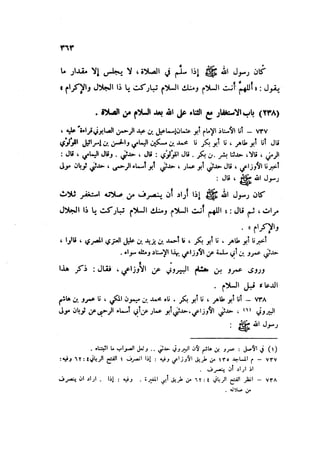 ٣٦٣
كان رسول الله ﷺ إذا سلم في الصلاة، لا يجلس إلا مقدار ما
يقول: «اللهم أنت السلام ومنك السلام تباركت يا ذا الجلال والإكرام»
(٢٣٨) باب الاستغفار مع الثناء على الله بعد السلام من الصلاة.
٧٣٧ – أنا الأستاذ الإمام أبو عثمان إسماعيل بن عبد الرحمن الصابوني قراءة عليه،
قال أنا أبو طاهر، نا أبو بكر، نا محمد بن مسكين اليمامي والحسن بن إسرائيل اللؤلؤي
الرملي، قالا، حدثنا بشر بن بكر، قال اللؤلؤي: قال، حدثني. وقال اليمامي: قال:
أخبرنا الأوزاعي، حدثني أبو عمار، حدثني أبو أسماء الرحبي، حدثني ثوبان مولى
رسول الله ﷺ، قال:
كان رسول الله ﷺ إذا أراد أن ينصرف من صلاته استغفر ثلاث
مرات، ثم قال: «اللهم أنت السلام ومنك السلام تباركت يا ذا الجلال
والإكرام».
أخبرنا أبو طاهر، نا أبو بكر، نا أحمد بن يزيد بن عليل العنزي المصري، قالوا،
حدثني عمرو بن أبي سلمة عن الأوزاعي بهذا الإسناد ومثله سواء.
وروى عمرو بن هشام البيروتي عن الأوزاعي، فقال: ذكر هذا
الدعاء قبل السلام.
٧٣٨ – أنا أبو طاهر، نا أبو بكر، ناه محمد بن ميمون المكي، نا عمرو بن هاشم
البيروتي (١)، حدثني الأوزاعي، حدثني أبو عمار عن أبي أسماء الرحبي عن ثوبان مولى
رسول الله ﷺ:
(١) في الأصل: عمرو بن هاشم لأن البيروتي حدثني.. ولعل الصواب ما أثبتناه.
٧٣٧ – م المساجد ١٣٥ من طريق الأوزاعي وفيه: إذا انصرف؛ الفتح الرباني ٤: ٦٢ وفيه:
إذا أراد أن ينصرف.
٧٣٨ – انظر الفتح الرباني ٤: ٦٢ من طريق أبي المغيرة. وفيه: إذا أراد أن ينصرف
من صلاته.